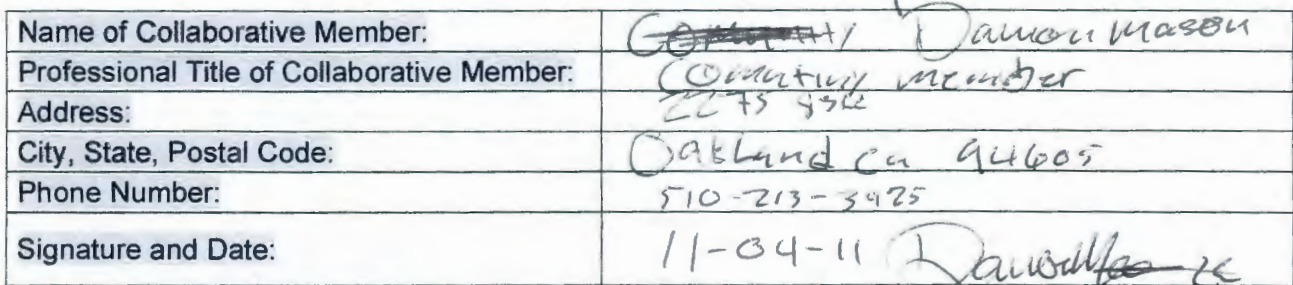 Name of Collaborative Member: Damon Mason
Professional Title of Collaborative Member: Comuntiny member
Address: 2275
City, State, Postal Code: Oakland ca 94605
Phone Number: 510-213-3925
Signature and Date: 11-04-11